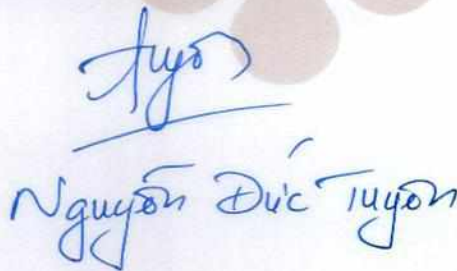 Tuyến
Nguyễn Đức Tuyến